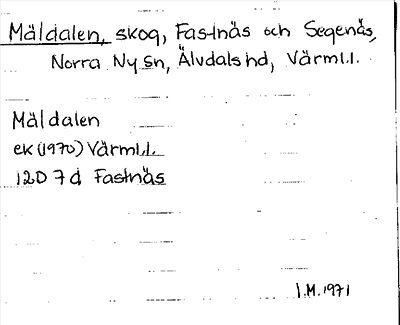 Mäldalen, skog, Fastnäs och Segenäs,
Norra Ny sn, Älvdals hd, Värml.l.
Mäldalen
ek (1970) Värml.l.
12D 7d Fastnäs
I.M. 1971